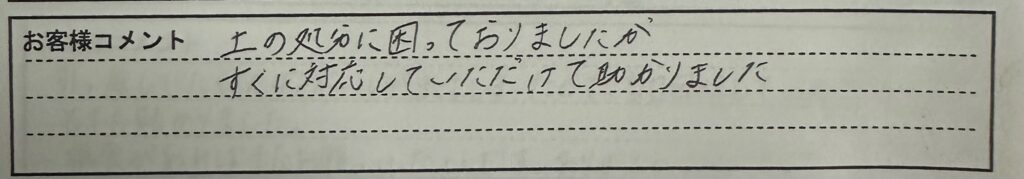 お客様コメント 土の処分に困っておりましたが
すぐに対応していただけて助かりました